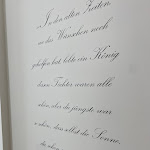 In den alten Zeiten,
wo das Wünschen noch
geholfen hat, lebte ein König,
dessen Töchter waren alle
schön, aber die jüngste war
so schön, dass selbst die Sonne,